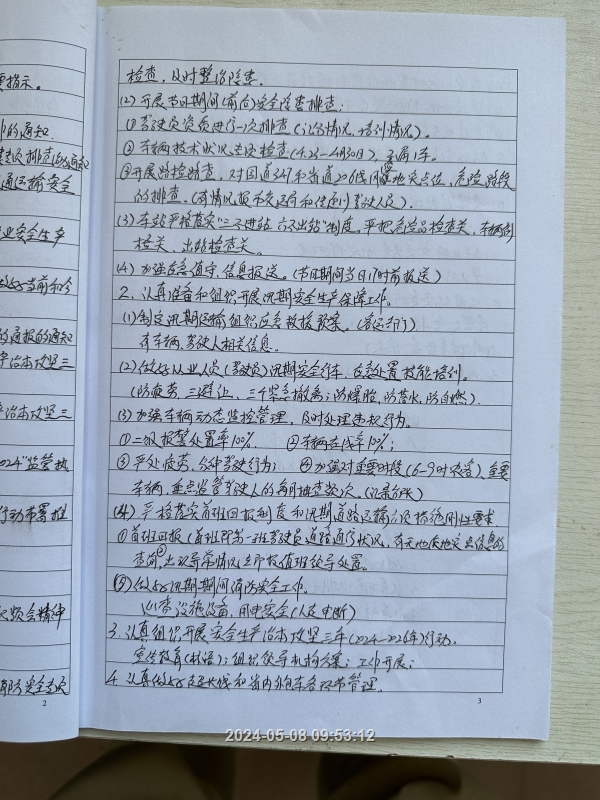 要指示。
的通知
通运输安全
业安全生产
做好当前和今
的通报的通知
产治本攻坚三
治本攻坚三
2024"监管执
行动部署推
议会精神
消防安全专项
2
检查，及时整治隐患。
(2) 开展节日期间(前后)安全隐患排查：
① 驾驶员资质进行一次排查(记分情况、培训情况)。
② 车辆技术状况进行检查(4.23-4月30日)，不漏1车。
③ 开展路检路查，对国道347和省道206线 地灾点位，危险路段
的排查。(有情况报市发运有和住建 驾驶人员)。
(3) 车站严格落实"三不进站、六不出站"制度，严把危险品检查关、车辆例
检关、出站检查关。
(4) 加强应急值守、信息报送。(节日期间当日17时前报送)
2、认真准备和组织开展汛期安全生产保障工作。
(1) 制定汛期运输组织应急救援预案。(客运部门)
有车辆、驾驶人相关信息。
(2) 做好从业人员(驾驶员)汛期安全行车、应急处置技能培训。
(防疲劳、三避让、三个紧急撤离；防爆胎，防落水，防自燃)。
(3) 加强车辆动态监控管理，及时处理违权行为。
① 二级报警处置率100%、 ② 车辆在线率100%；
③ 严处疲劳、分神驾驶行为； ④ 加强对重要时段(6-9时凌晨)、重要
车辆、重点监管驾驶人的每月抽查频次。(记录台账)
(4) 严格落实首班回报制度和汛期道路运输六项措施刚性要求
① 首班回报(首班所第一班驾驶员道路通行状况，有无地质地灾点信息的
查询)② 出现异常情况立即报值班领导处置。
(5) 做好汛期期间消防安全工作。
巡查设施设备，用电安全(人走电断)
3、认真组织开展安全生产治本攻坚三年(2024-2026年)行动。
宣传教育(标语)；组织领导机构方案；工作开展；
4、认真做好超长线和省内包车各环节管理。
3
2024-05-08 09:53:12